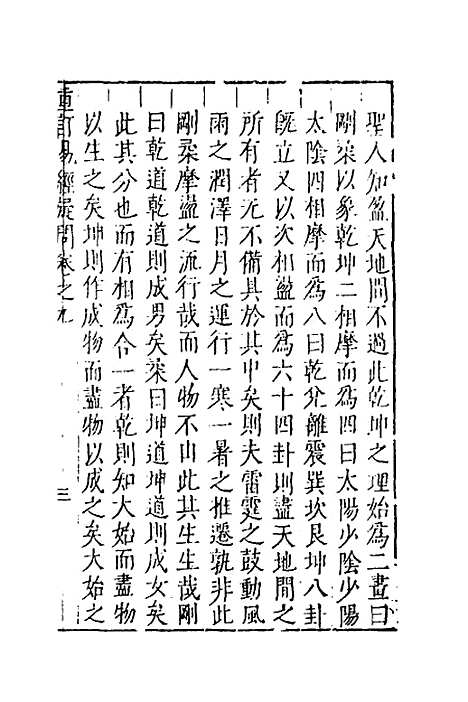 聖人知盈天地間不過此乾坤之理始為二畫曰
剛柔以象乾坤二相摩而為四曰太陽少陰少陽
太陰四相摩而為八曰乾兌離震巽坎艮坤八卦
既立又以次相盪而為六十四卦則盡天地間之
所有者无不備具於其中矣則夫雷霆之鼓動風
雨之潤澤日月之運行一寒一暑之推遷孰非此
剛柔摩盪之流行哉而人物不由此其生生哉剛
曰乾道乾道則成男矣柔曰坤道坤道則成女矣
此其分也而有相為合一者乾則知大始而盡物
以生之矣坤則作成物而盡物以成之矣大始之
重訂易經疑問卷之九
三